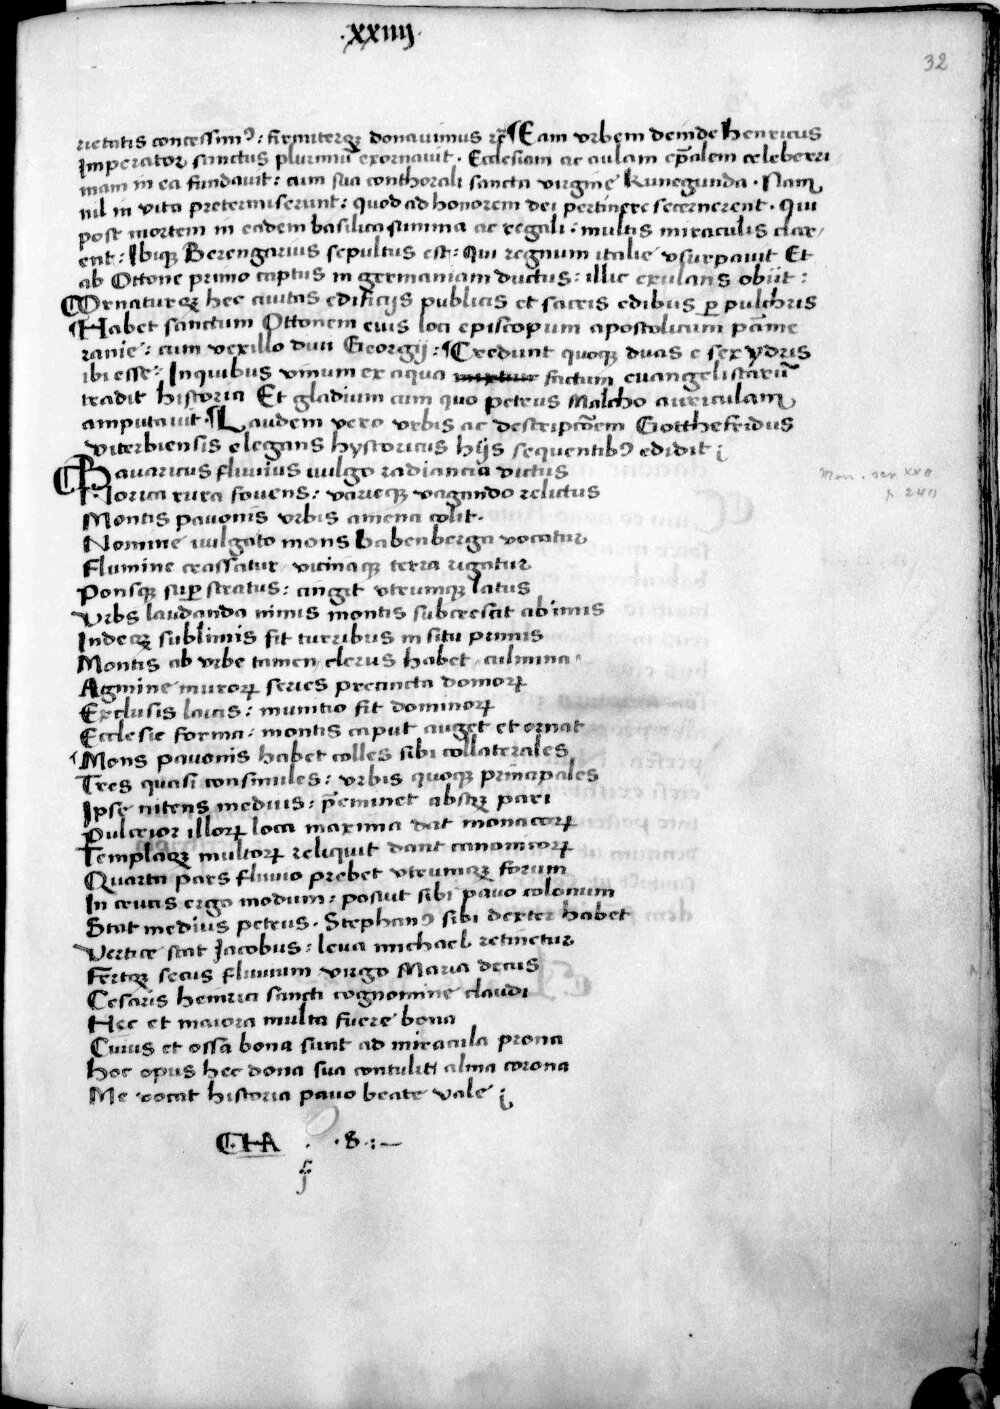 ·xxiiij·
32
rietatis concessimꝰ: firmiterqꝫ donauimus ⁊c̄ ¶Eam vrbem deinde Henricus
Imperator sanctus plurimū exornauit· Ecclesiam ac aulam ep̄alem celeberri
mam in ea fundauit: cum sua conthorali sancta virgine Kunegunda· Nam
nil in vita pretermiserunt: quod ad honorem dei pertinere secernerent· Qui
post mortem in eadem basilica summa ac regali: multis miraculis clar/
ent: Ibiqꝫ Berengarius sepultus est: Qui regnum italie vsurpauit Et
ab Ottone primo captus in germaniam ductus: illic exulans obijt:
¶Ornaturqꝫ hec ciuitas edificijs publicis et sacris edibus ꝑ pulchris
¶Habet sanctum Ottonem eius loci episcopum apostolicum pa̅me
ranie: cum vexillo diui Georgij: ¶Credunt quoqꝫ duas e sex ydris
ibi esse: In quibus vinum ex aqua factum euangelistarū
tradit historia Et gladium cum quo petrus Malcho auriculam
amputauit· ¶Laudem vero vrbis ac descripcōem Gotthefridus
viterbiensis elegans hystoricus hijs sequentibꝰ edidit ;
¶Bauaricus fluuius vulgo radiancia victus
Norica rura fouens: varieqꝫ vagando relictus
Montis pauonis vrbis amena colit·
Nomine vulgato mons babenberga vocatur
Flumine crassatur vicinaqꝫ terra rigatur
Ponsqꝫ suꝑ stratus: cingit vtrumqꝫ latus
Vrbs laudanda nimis montis subcrescit ab imis
Indeqꝫ sublimis fit turribus in situ primis
Montis ab vrbe tamen clerus habet culmina·
Agmine muroꝝ series precincta domoꝝ
Exclusis locis: munitio fit dominoꝝ
Ecclesie forma: montis caput auget et ornat
¶Mons pauonis habet colles sibi collaterales
Tres quasi consimiles: vrbis quoqꝫ principales
Ipse nitens medius: p̄eminet absqꝫ pari
Pulcrior illoꝝ loca maxima dat monacoꝝ
Templaqꝫ multoꝝ reliquit dant canonicoꝝ
Quarta pars fluuio prebet vtrumqꝫ forum
In crucis ergo modum: posuit sibi pauo colonum
Stat medius petrus· Stephanꝰ sibi dexter habet
Vertice stat Jacobus: leua michael retinetur
Fertqꝫ secus fluuium virgo Maria decus
Cesaris heinrici sancti cognomine claudi
Hec et maiora multa fuere bona
Cuius et ossa bona sunt ad miracula prona
hoc opus hec dona sua contulit alma corona
Me vocat historia pauo beate vale ;
Mon. ser XXII
p. 240
· 8 · : —